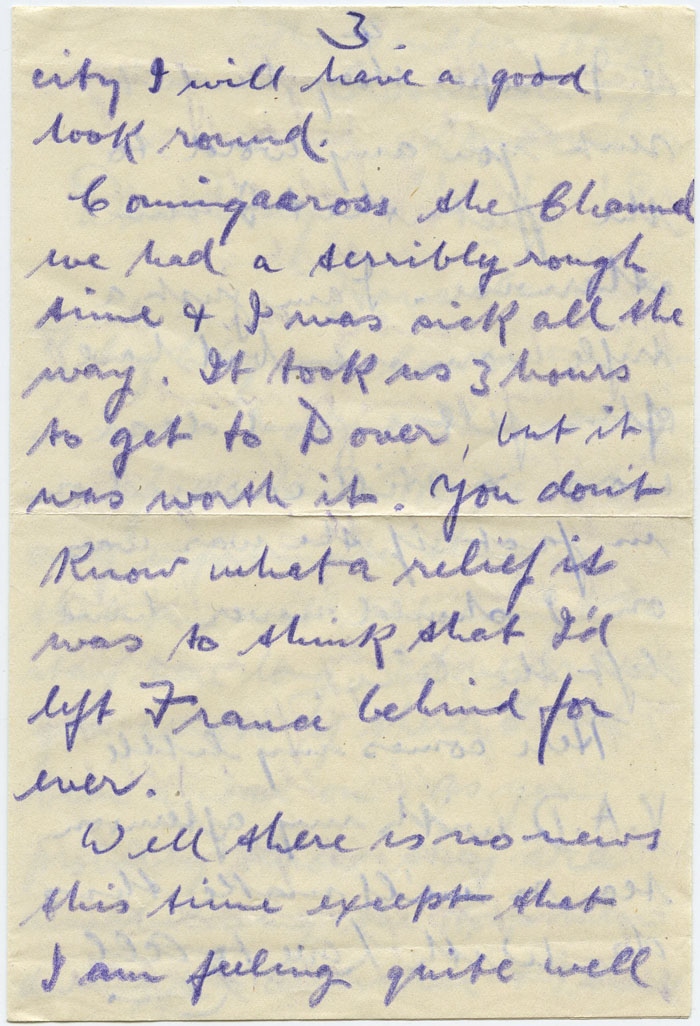 3.
city I will have a good
look round.
Coming across the Channel
we had a terribly rough
time & I was sick all the
way. It took us 3 hours
to get to Dover, but it
was worth it. You don't
know what a relief it
was to think that I'd
left France behind for
ever.
Well there is no news
this time except that
I am feeling quite well